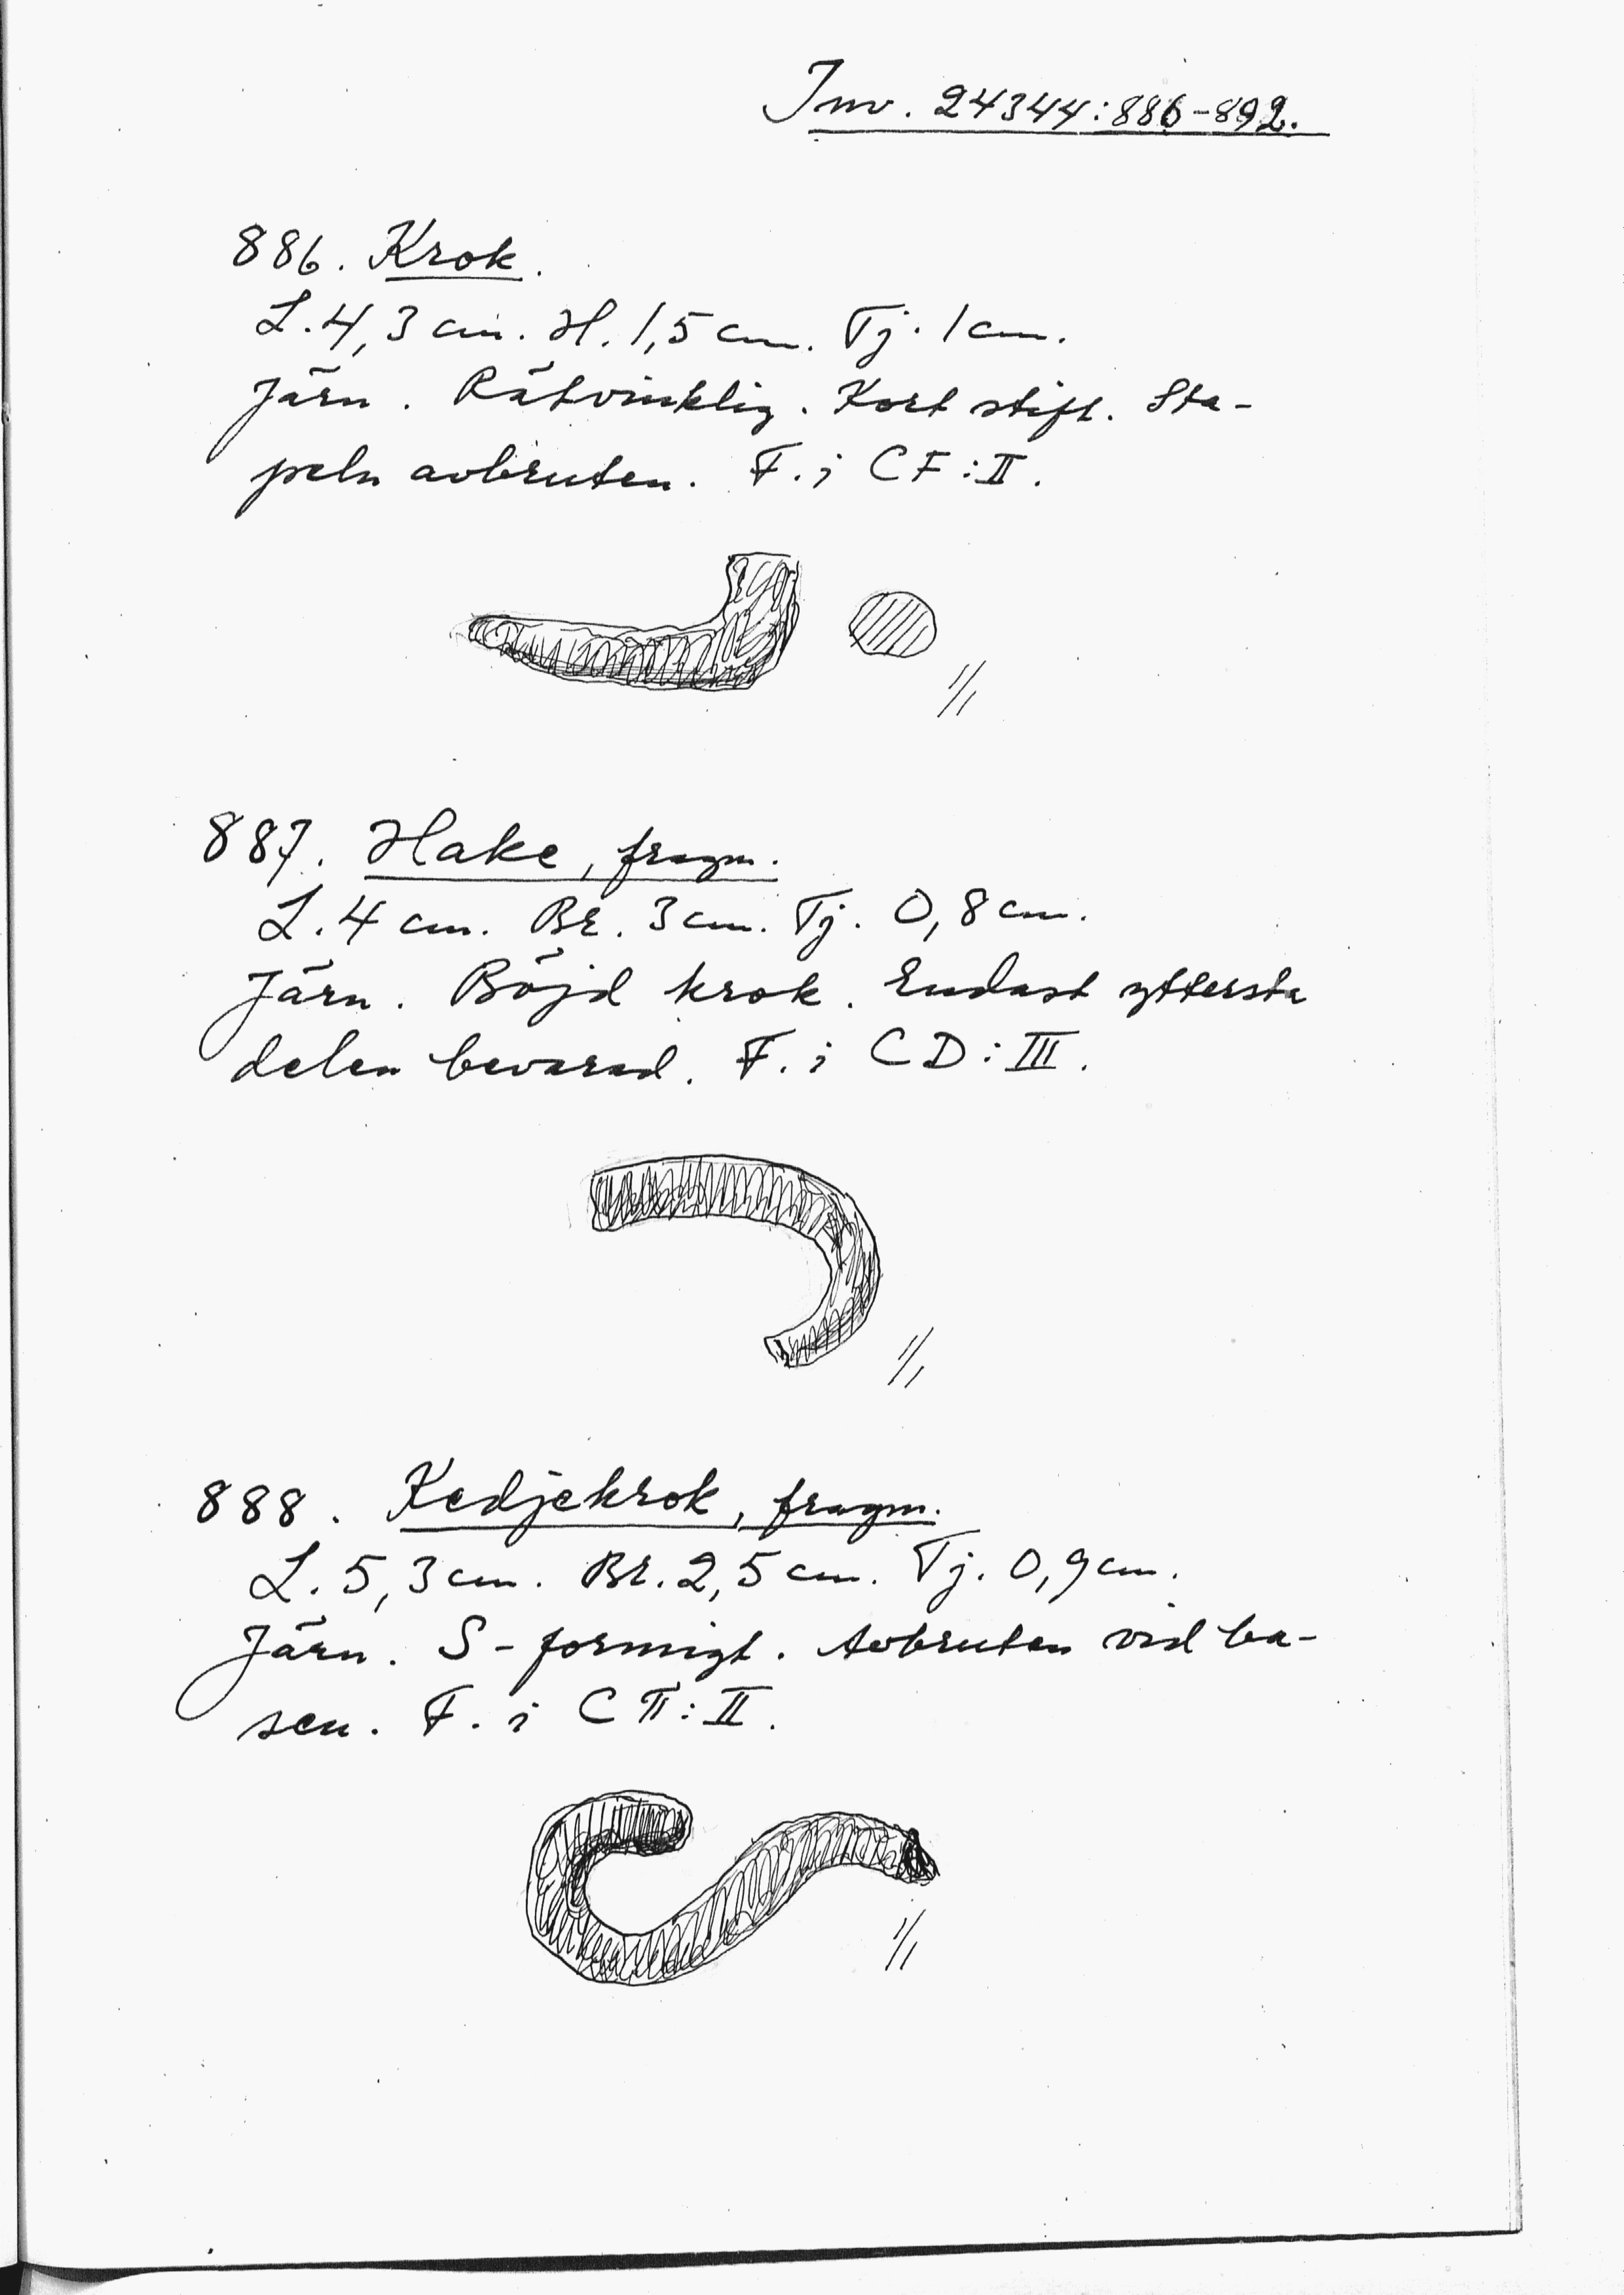 Inv. 24344:886-892.
886. Krok.
L. 4,3 cm. H. 1,5 cm. Tj. 1 cm.
Järn. Rätvinklig. Kort stift. Sta-
peln avbruten. F. i CF:II.
1/1
887. Hake, fragm.
L. 4 cm. Br. 3 cm. Tj. 0,8 cm.
Järn. Böjd krok. Endast yttersta
delen bevarad. F. i CD:III.
1/1
888. Kedjekrok, fragm.
L. 5,3 cm. Br. 2,5 cm. Tj. 0,9 cm.
Järn. S-formigt. Avbruten vid ba-
sen. F. i C :II.
1/1